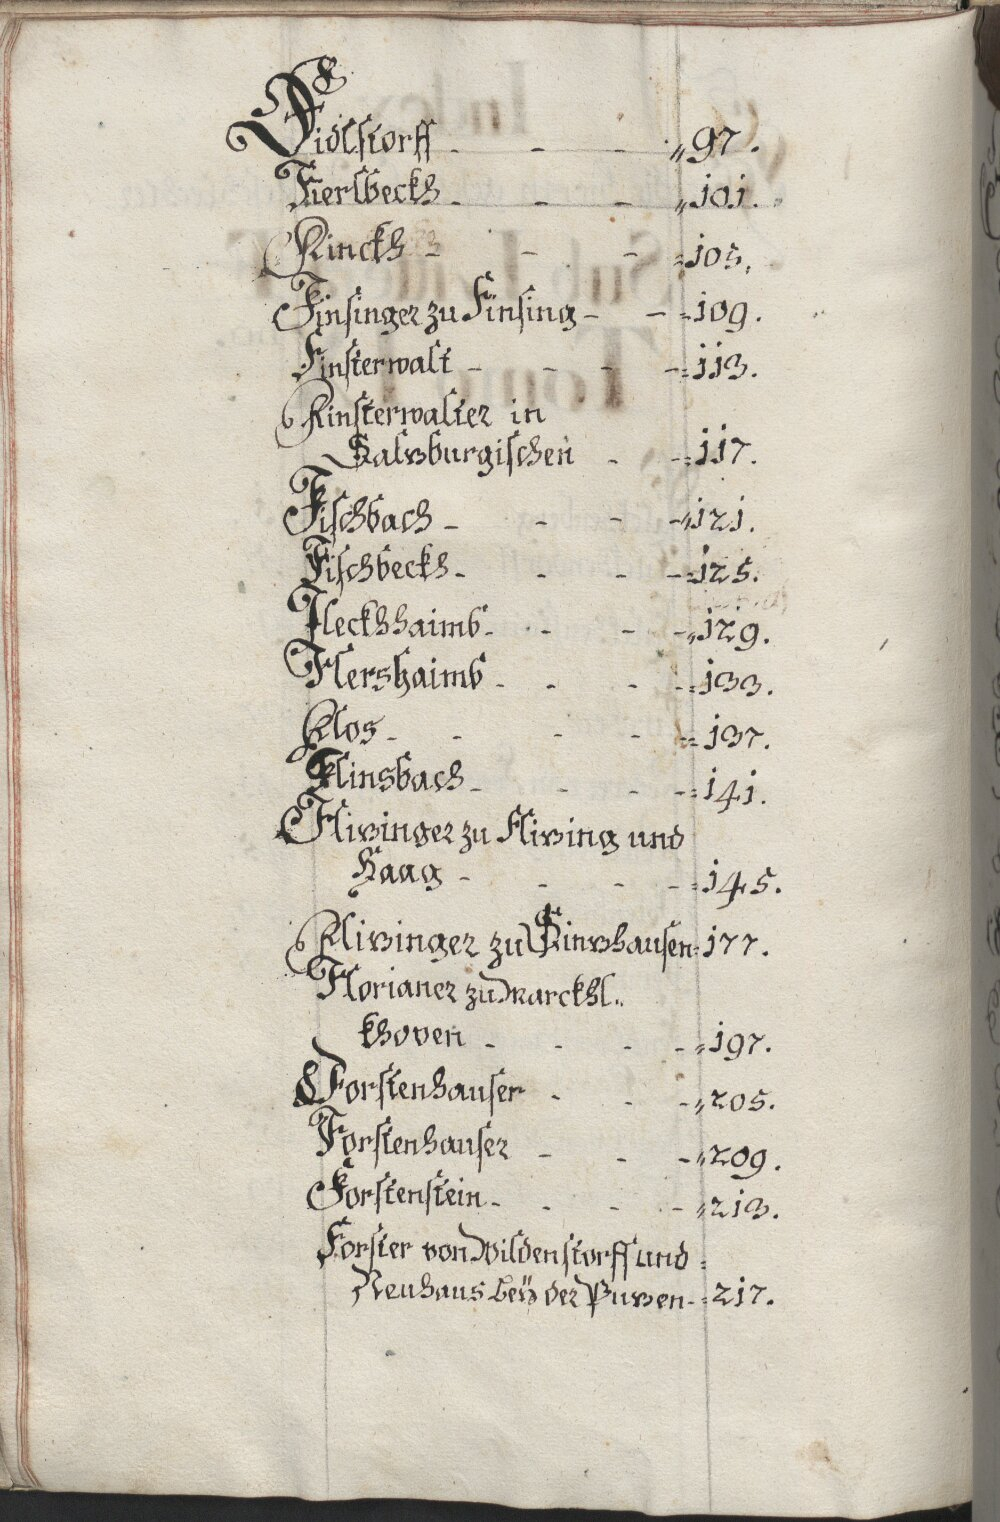 Fidlstorff - - - „ 97.
Fierlbeckh - - - „ 101.
Finckh - - - = 105.
Finsinger zu Finsing - - = 109.
Finsterwalt - - - - = 113.
Finsterwalter in
Saltzburgischen - - = 117.
Fischbach - - - - „ 121.
Fischbeckh - - - - = 125.
Fleckhhaimb - - - - „ 129.
Flershaimb - - - - = 133.
Flos - - - - = 137.
Flinsbach - - - - = 141.
Flitzinger zu Flitzing und
Haag - - - - = 145.
Flitzinger zu Rintzhausen = 177.
Florianer zu Marckhl..
khoven - - - - „ 197.
Forstenhauser - - - „ 205.
Forstenhauser - - - „ 209.
Forstenstein - - - - „ 213.
Forster von Wildenstorff und =
Neuhaus beÿ der Putzen - = 217.